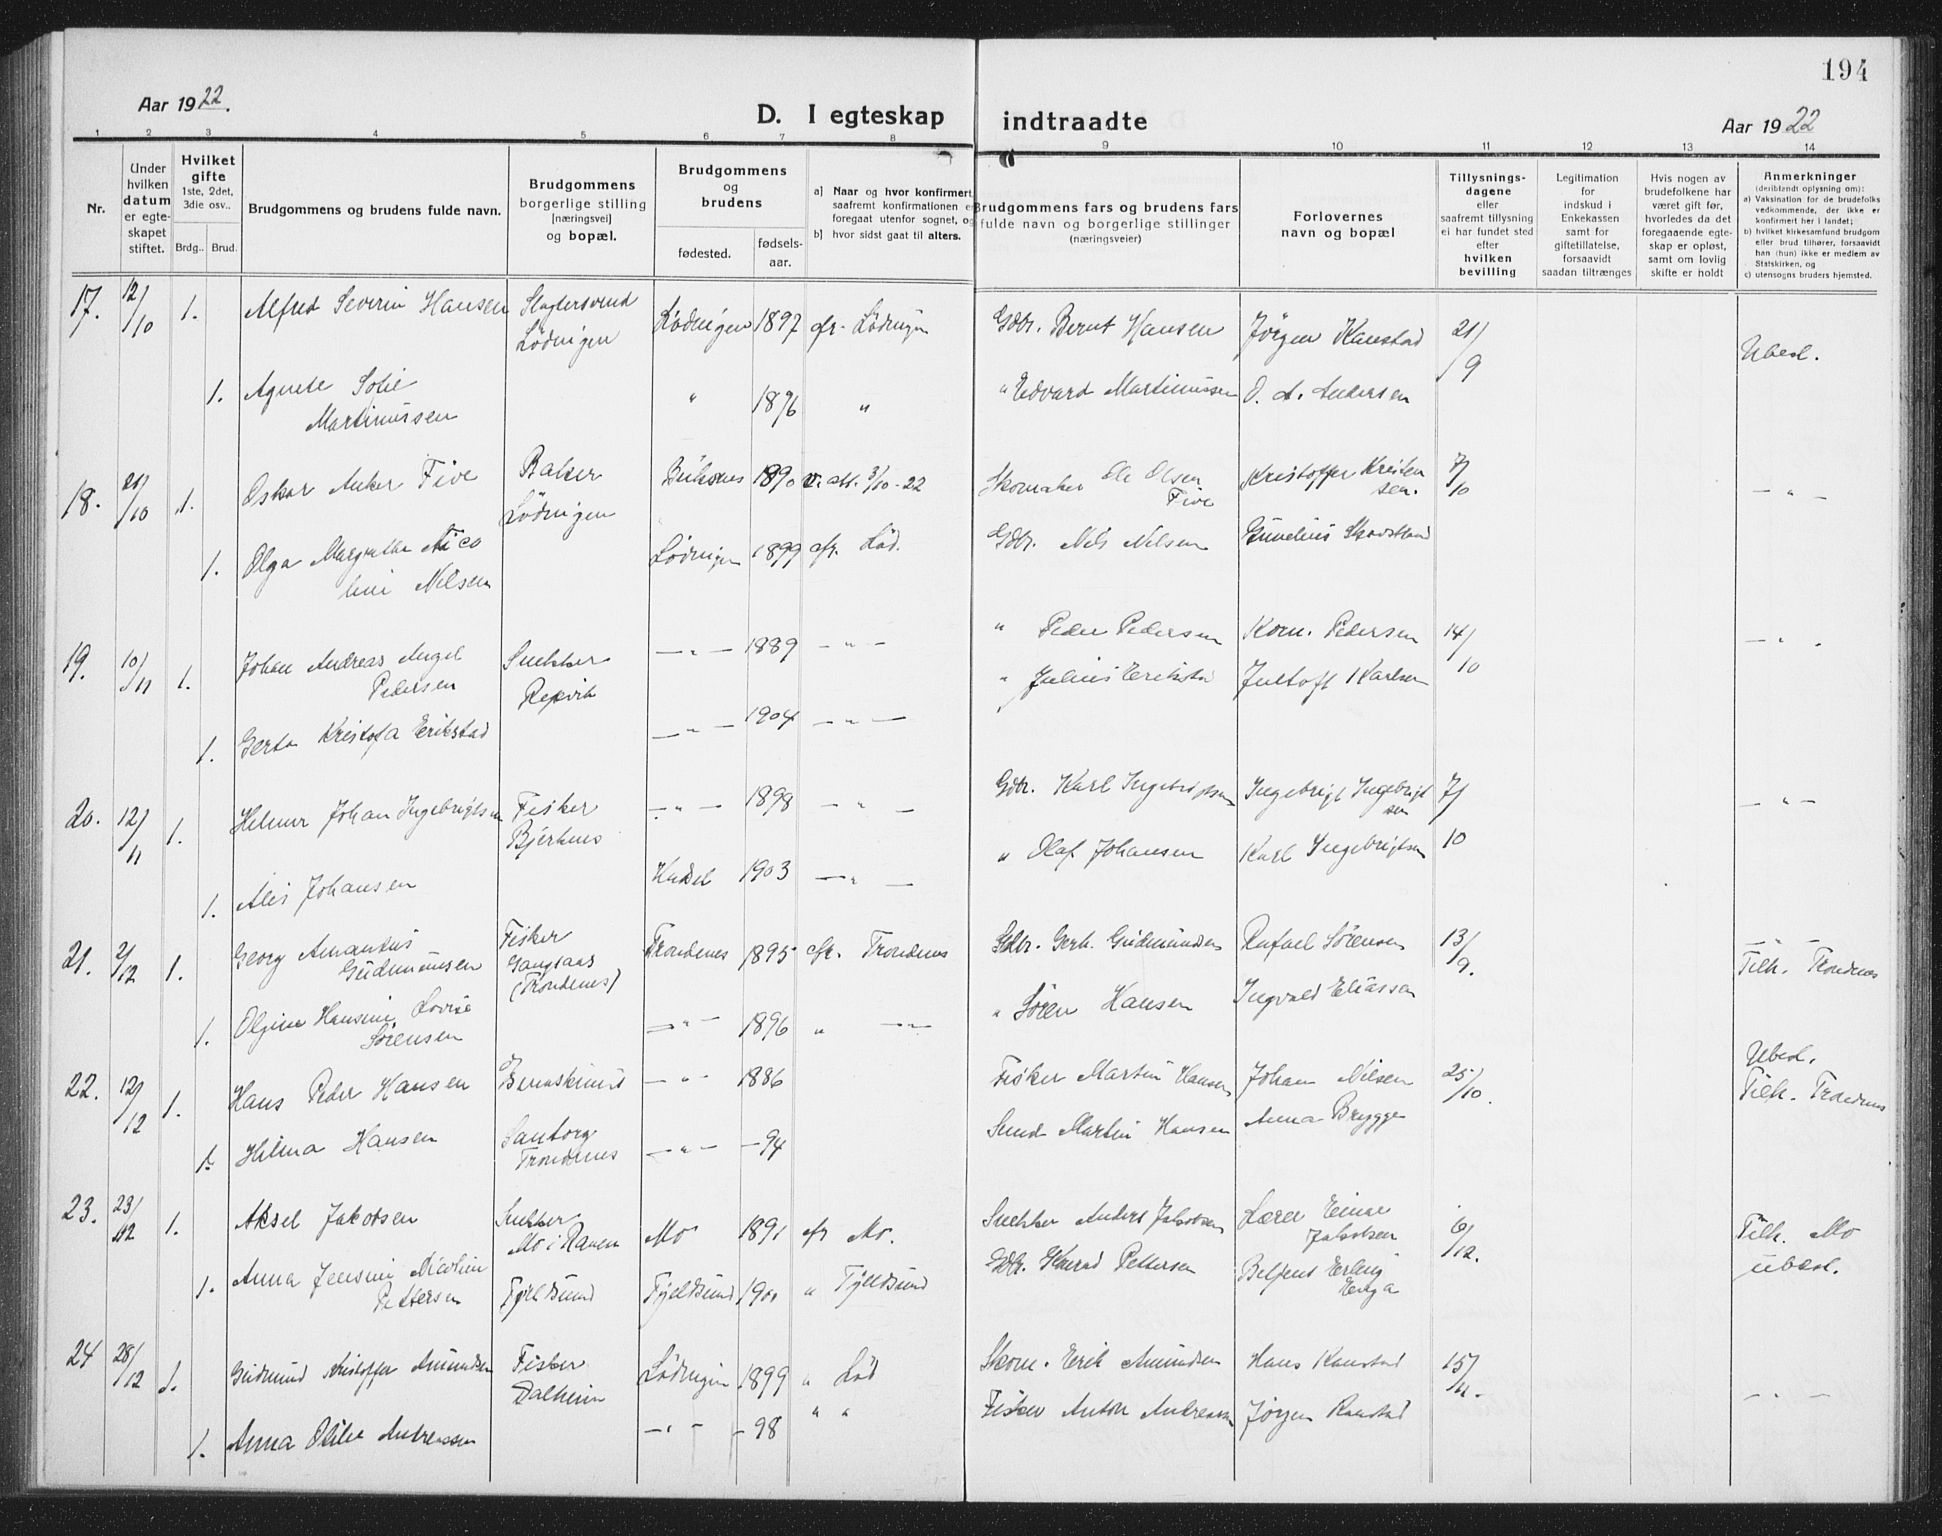 194
Aar 1922.
D. I egteskap indtraadte
Aar 1922
1 2 3 4 5 6 7 8 9 10 11 12 13 14
Nr.
Under hvilken datum er egte- skapet stiftet.
Hvilket gifte 1ste, 2det, 3die osv..
Brdg.. Brud.
Brudgommens og brudens fulde navn.
Brudgommens borgerlige stilling (næringsvei) og bopæl.
Brudgommens og brudens
fødested. fødsels- aar.
a) Naar og hvor konfirmert, saafremt konfirmationen er foregaat utenfor sognet, og
b) hvor sidst gaat til alters.
Brudgommens fars og brudens fars fulde navn og borgerlige stillinger (næringsveier)
Forlovernes navn og bopæl
Tillysnings- dagene eller saafremt tillysning ei har fundet sted efter hvilken bevilling
Legitimation for indskud i Enkekassen samt for giftetillatelse, forsaavidt saadan tiltrænges
Hvis nogen av brudefolkene har været gift før, hvorledes da det foregaaende egte- skap er opløst, samt om lovlig skifte er holdt
Anmerkninger (deriblandt oplysning om):
a) Vaksination for de brudefolks vedkommende, der ikke er konfirmert her i landet;
b) hvilket kirkesamfund brudgom eller brud tilhører, forsaavidt han (hun) ikke er medlem av Statskirken, og
c) utensogns bruders hjemsted.
17. 12/10 1. Alfred Severin Hansen Slagtersvend Lödingen Lödingen 1897 cfr. Lödingen Gdbr. Bernt Hansen Jörgen Kanstad 21/9 Ubesl.
1. Agnete Sofie Martinussen " 1896 " " Edvard Martinussen O. A. Andersen
18. 21/10 1. Oskar Anker Five Baker Lödingen 1890 v. alt. 3/10-22 Skomaker Ole Olsen Five Kristoffer Kristensen. 7/10 — " —
1. Olga Margrethe Nicoline Nilsen Lödingen 1899 cfr. Löd. Gdbr. Nils Nilsen
19. 10/11 1. Johan Andreas Angel Pedersen Snekker Repvik — " — 1889 — " — " Peder Pedersen Korn. Pedersen 14/10 — " .
1. Gerta Kristofa Erikstad — " — 1904 — " — " Julius Erikstad Karlsen
20. 12/11 1. Hilmar Johan Ingebrigtsen Fisker — " — 1898 — " — Gdbr. Karl Ingebrigtsen Ingebrigt Ingebrigtsen 7/10 — " —
1. Alis Johansen Hadsel 1903 — " — " Olaf Johansen Karl Ingebrigtsen
21. 2/12 1. Georg Amandus Gudmundsen Fisker Gangsaas (Trondenes) Trondenes 1895 cfr. Trondenes Gdbr. Gerh. Gudmundsen Rafael Sörensen 13/9. — " — Tilh. Trondenes
1. Olgine Hansine Lovise Sörensen — " — 1896 " — " — " Sören Hansen Ingvald Eliassen
22. 12/12 1. Hans Peder Hansen — " — 1886 Fisker Martin Hansen Johan Nilsen 25/10. Ubesl. Tilh. Trondenes
1. Hilma Hansen Santorg Trondenes — " — — 94 Martin Hansen Anna Brygge
23. 23/12 1. Aksel Jakobsen Snekker Mo i Ranen Mo 1891 cfr Mo. Snekker Anders Jakobsen Lærer Einar Jakobsen 6/12. Tilh. Mo ubesl.
1. Anna Jensine Nicoline Pettersen Fjeldsund Fjeldsund 1900 " Fjeldsund Gdbr. Konrad Pettersen Erling Enga
24 28/12 1. Gudmund Kristoffer Amundsen Fisker Dalheim Lödingen 1899 " Löd Skom. Erik Amundsen Hans Kanstad 15/11. — " —
1. Anna Otilie Andreassen — " — — 98 " " Fisker Anton Andreassen Jörgen Kanstad